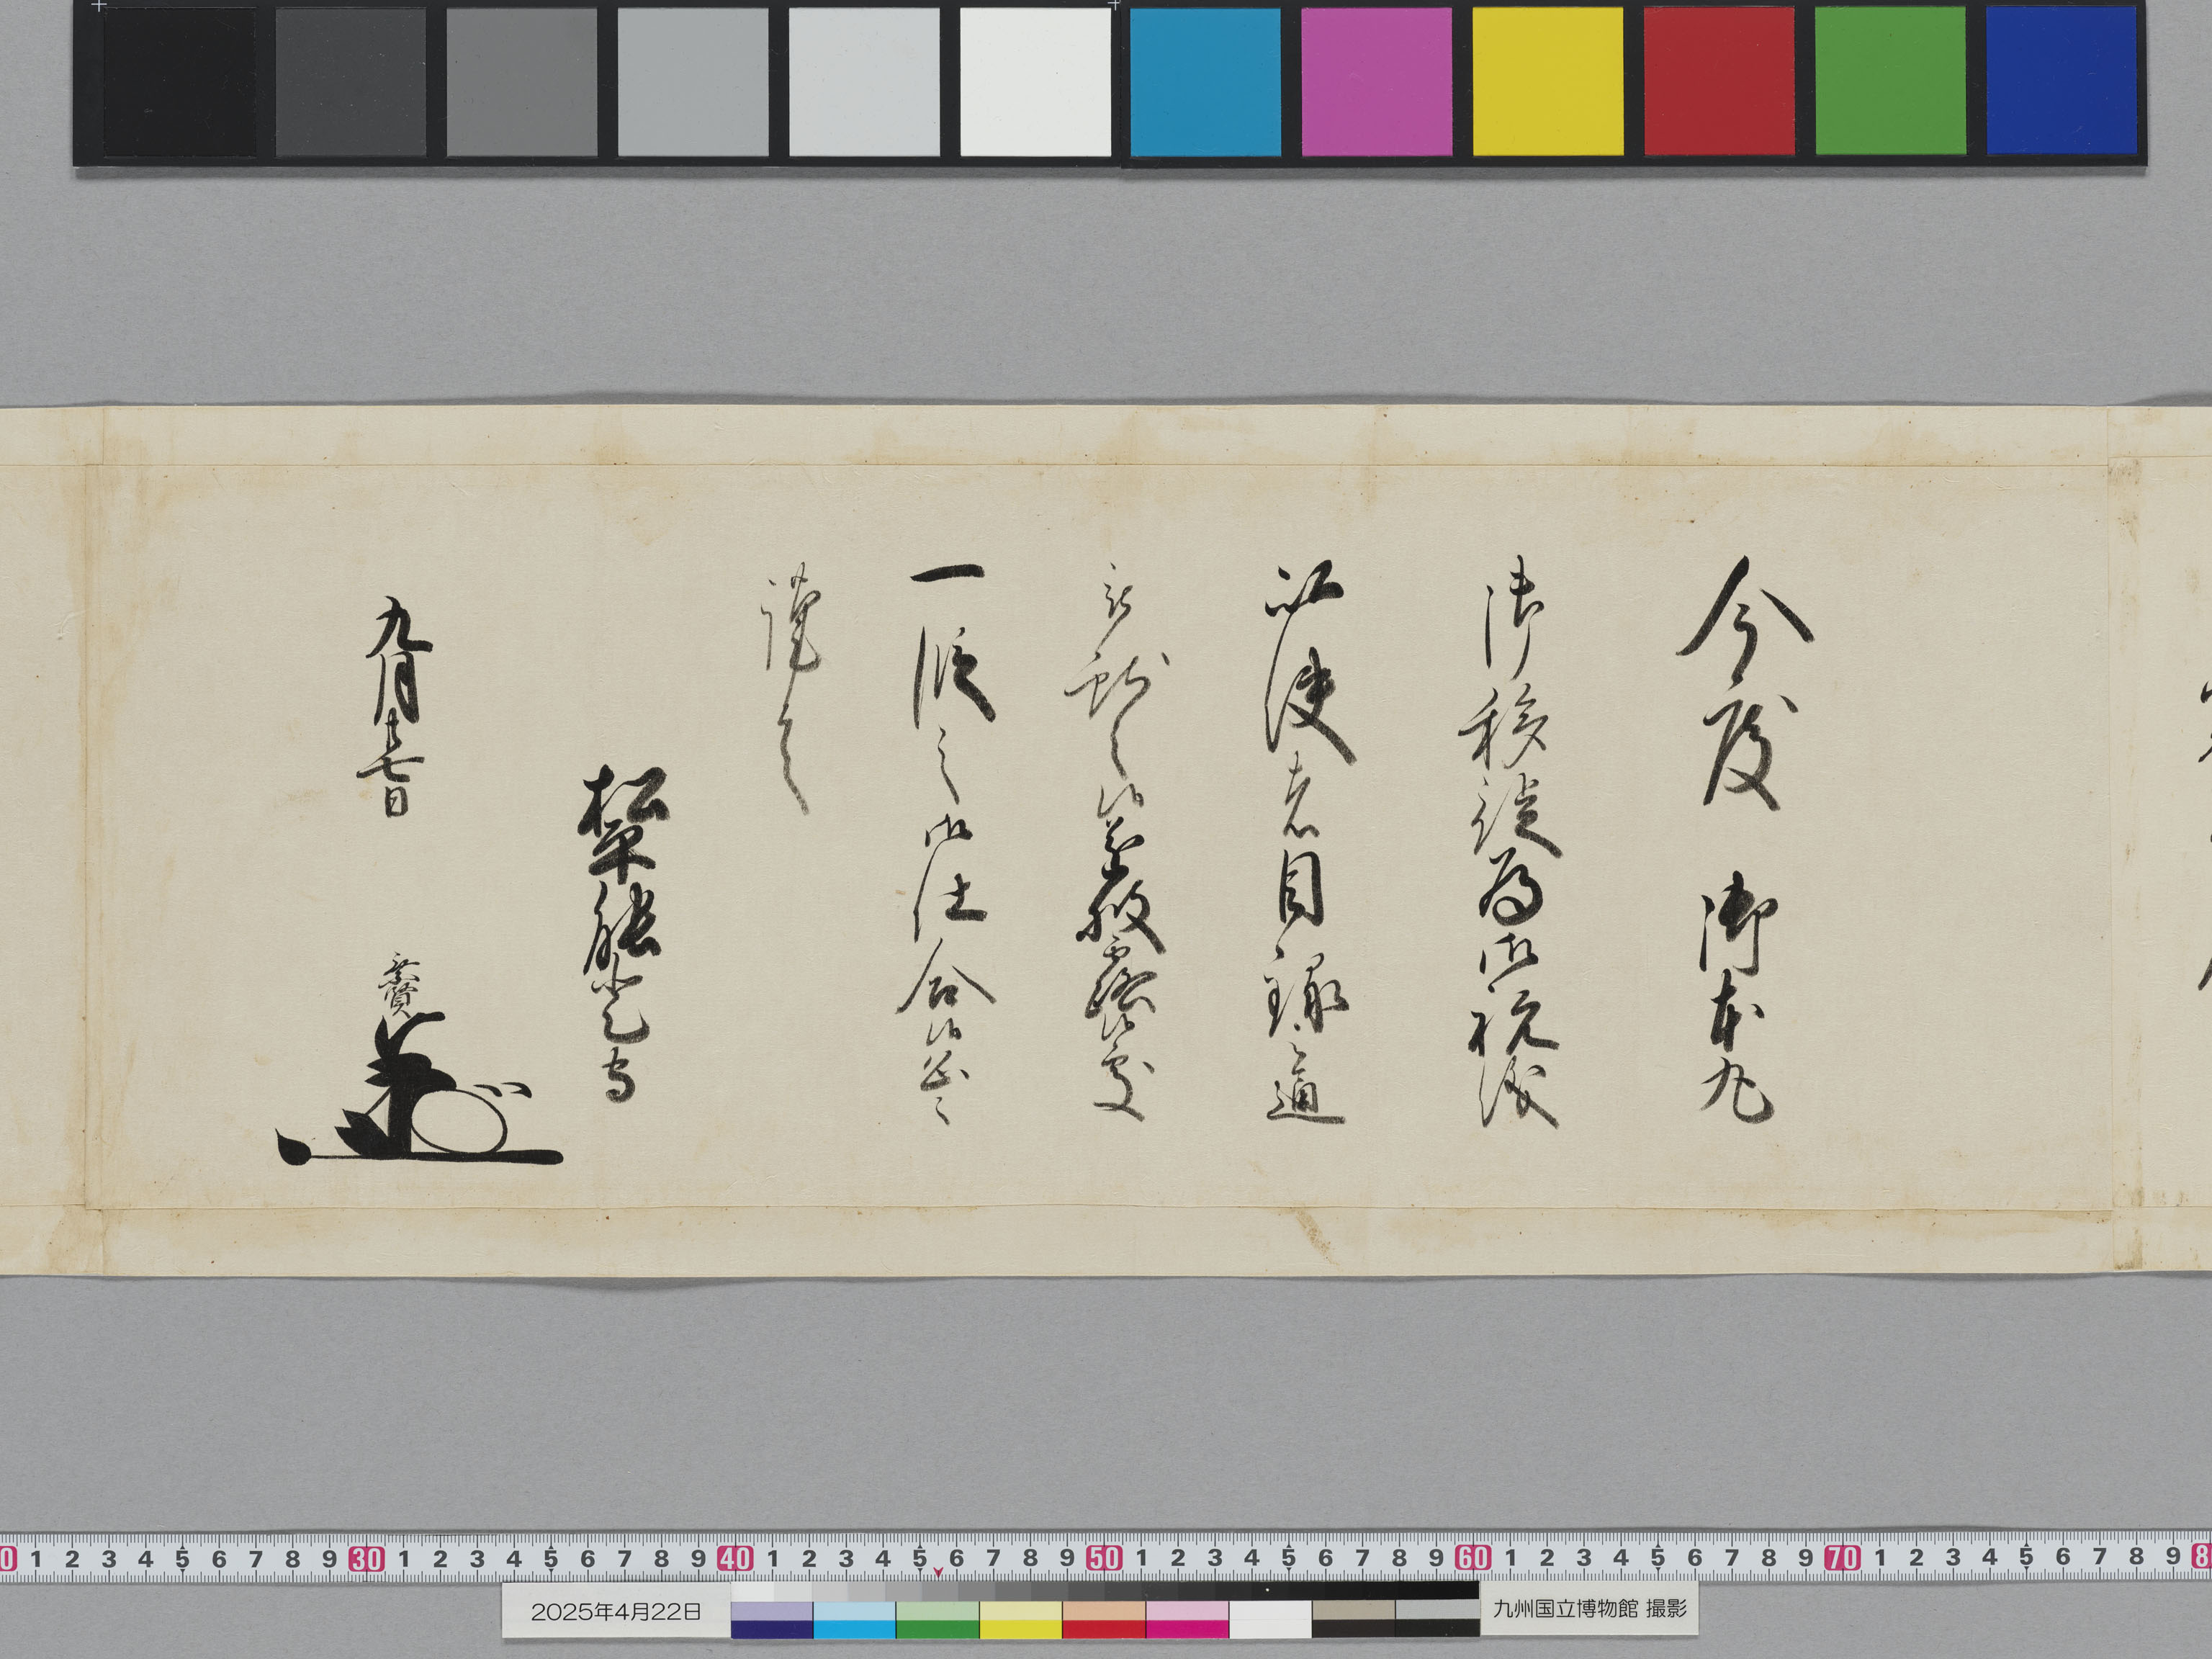 今度 御本丸
御移徙為御祝儀
以使者目録之通
献之候遂披露候処
一段之御仕合候恐々
謹言
松平能登守
九月廿七日
乗賢
0 1 2 3 4 5 6 7 8 9 30 1 2 3 4 5 6 7 8 9 40 1 2 3 4 5 6 7 8 9 50 1 2 3 4 5 6 7 8 9 60 1 2 3 4 5 6 7 8 9 70 1 2 3 4 5 6 7 8 9 8
2025年4月22日
九州国立博物館 撮影